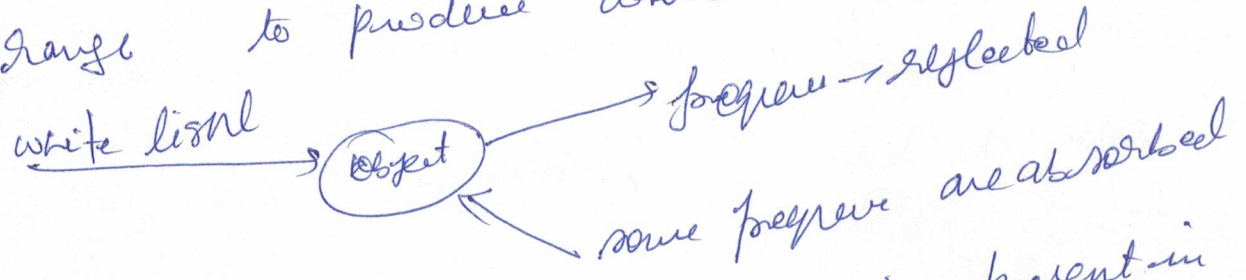 range to produce
white light
object
frequen → reflected
some frequen are absorbed
present in